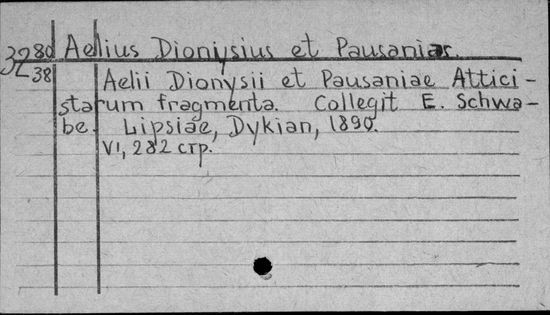 32 80 Aelius Dionysius et Pausanias
38 Aelii Dionysii et Pausaniae Attici-
starum fragmenta. Collegit E. Schwa-
be. Lipsiae, Dykian, 1890.
VI, 282 стр.